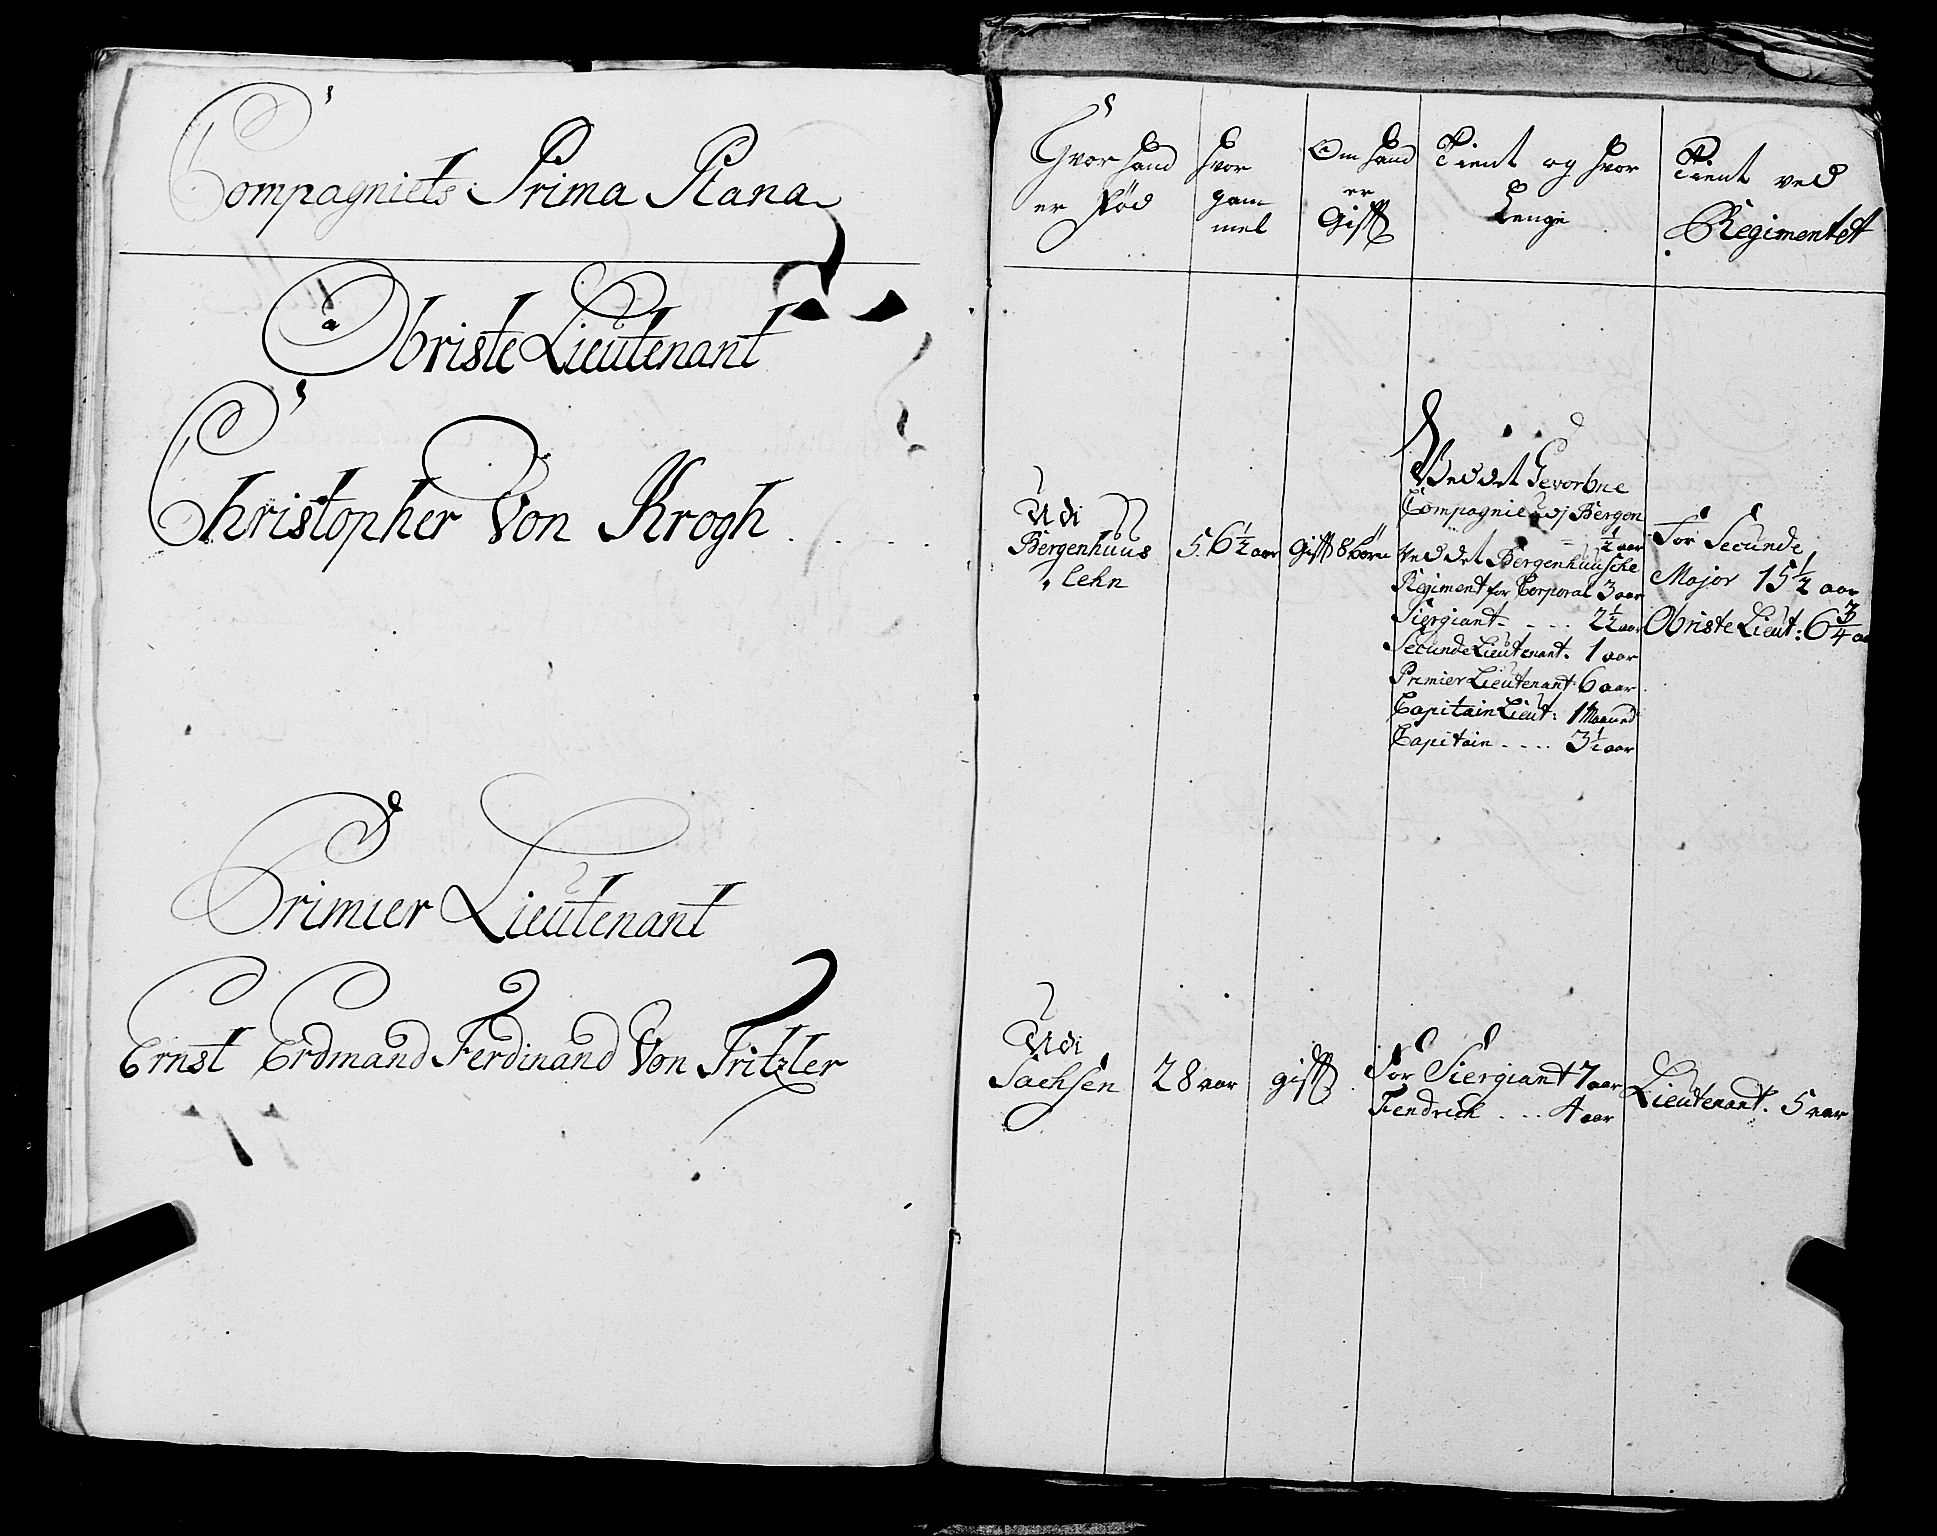 Compagniets Prima Plana
Obriste Lieutenant
Christopher Von Krogh . . . .
Primier Lieutenant
Ernst Erdmand Ferdinand Von Fritzler
Hvor hand
er Fød
Hvor
gam
mel
Om hand
er
Gifft
Tient og hvor
Lenge
Tient ved
Regimentet
Udi
Bergenhuus
Lehn
56 1/2 aar
Gifft 8 børn
Ved det Gevorbne
Compagnie vdj Bergen
1/2 aar
Ved det Bergenhuusche
Regiment for Corporal 3 aar
Siergiant - . . . 2 1/2 aar
Secunde Lieutenant. 1 aar
Primier Lieutenant 6 aar
Capitain Lieut: 1 Maaned
Capitain . . . . 3 1/2 aar
For Secunde
Major 15 1/2 aar
Obriste Lieut: 6 3/4 aa
Udi
Sachsen
28 aar
gifft
For Siergiant 7 aar
Fendrich . . . 4 aar
Lieutenant. 5 aar